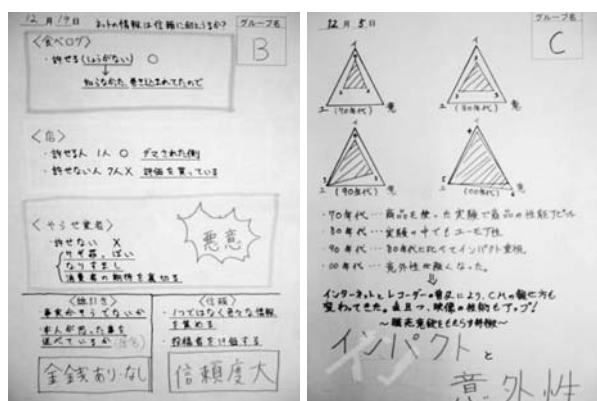 12月19日 ネットの情報は信頼に耐えうるか?
グループ名
B
〈食べログ〉
・許せる(しょうがない) ○
知らなかった 巻き込まれてたので
〈店〉
・許せる人 1人 ○ ダマされた側
・許せない人 7人 × 評価を買っている
〈やらせ業者〉
・許せない ×
サギ罪っぽい
なりすまし
消費者の期待を裏切る
悪意
〈線引き〉
・事実かそうでないか
・本人が思った事を
述べているか
金銭あり・なし
〈信頼〉
・1つではなく色々な情報
を集める
・投稿者を評価する
信頼度大
12月5日
グループ名
C
イ
ユ (70年代) 意
イ
ユ (80年代) 意
イ
ユ (90年代) 意
イ
ユ (00年代) 意
・70年代…商品を使った実験で商品の性能アピール
・80年代…実験の中でもユーモア性
・90年代…80年代に比べてインパクト重視
・00年代…意外性が強くなった。
インターネットとレコーダーの普及により、CMの観せ方も
変わってきた。且つ、映像の技術もアップ!
インパクトと
意外性